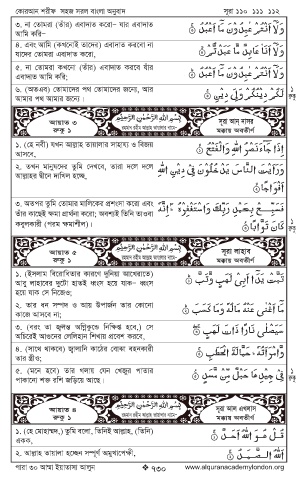 কোরআন শরীফ সহজ সরল বাংলা অনুবাদ
সূরা ১১০ ১১১ ১১২
৩. না তোমরা (তাঁর) এবাদত করো- যাঁর এবাদত
আমি করি-
وَلَا أَنتُمْ عَٰبِدُونَ مَا أَعْبُدُ
৪. এবং আমি (কখনোই তাদের) এবাদত করবো না
যাদের তোমরা এবাদত করো,
وَلَا أَنَا عَابِدٌ مَّا عَبَدتُّمْ
৫. না তোমরা কখনো (তাঁর) এবাদত করবে যাঁর
এবাদত আমি করি;
وَلَا أَنتُمْ عَٰبِدُونَ مَا أَعْبُدُ
৬. (অতএব) তোমাদের পথ তোমাদের জন্যে, আর
আমার পথ আমার জন্যে।
لَكُمْ دِينُكُمْ وَلِيَ دِينِ
আয়াত ৩
রুকু ১
بِسْمِ اللَّهِ الرَّحْمَٰنِ الرَّحِيمِ
রহমান রহীম আল্লাহ তায়ালার নামে-
সূরা আন নাসর
মক্কায় অবতীর্ণ
১. (হে নবী) যখন আল্লাহ তায়ালার সাহায্য ও বিজয়
আসবে,
إِذَا جَاءَ نَصْرُ اللَّهِ وَالْفَتْحُ
২. তখন মানুষদের তুমি দেখবে, তারা দলে দলে
আল্লাহর দ্বীনে দাখিল হচ্ছে,
وَرَأَيْتَ النَّاسَ يَدْخُلُونَ فِي دِينِ اللَّهِ
أَفْوَاجًا
৩. অতপর তুমি তোমার মালিকের প্রশংসা করো এবং
তাঁর কাছেই ক্ষমা প্রার্থনা করো; অবশ্যই তিনি তাওবা
কবুলকারী (পরম ক্ষমাশীল)।
فَسَبِّحْ بِحَمْدِ رَبِّكَ وَاسْتَغْفِرْهُ إِنَّهُ
كَانَ تَوَّابًا
আয়াত ৫
রুকু ১
بِسْمِ اللَّهِ الرَّحْمَٰنِ الرَّحِيمِ
রহমান রহীম আল্লাহ তায়ালার নামে-
সূরা লাহাব
মক্কায় অবতীর্ণ
১. (ইসলাম বিরোধিতার কারণে দুনিয়া আখেরাতে)
আবু লাহাবের দুটো হাতই ধ্বংস হয়ে যাক- ধ্বংস
হয়ে যাক সে নিজেও;
تَبَّتْ يَدَا أَبِي لَهَبٍ وَتَبَّ
২. তার ধন সম্পদ ও আয় উপার্জন তার কোনো
কাজে আসবে না;
مَا أَغْنَىٰ عَنْهُ مَالُهُ وَمَا كَسَبَ
৩. (বরং তা জ্বলন্ত অগ্নিকুন্ডে নিক্ষিপ্ত হবে,) সে
অচিরেই আগুনের লেলিহান শিখায় প্রবেশ করবে,
سَيَصْلَىٰ نَارًا ذَاتَ لَهَبٍ
৪. (সাথে থাকবে) জ্বালানি কাঠের বোঝা বহনকারী
তার স্ত্রীও;
وَامْرَأَتُهُ حَمَّالَةَ الْحَطَبِ
৫. (মনে হবে) তার গলায় যেন খেজুর পাতার
পাকানো শক্ত রশি জড়িয়ে আছে।
فِي جِيدِهَا حَبْلٌ مِّن مَّسَدٍ
আয়াত ৪
রুকু ১
بِسْمِ اللَّهِ الرَّحْمَٰنِ الرَّحِيمِ
রহমান রহীম আল্লাহ তায়ালার নামে-
সূরা আল এখলাস
মক্কায় অবতীর্ণ
১. (হে মোহাম্মদ,) তুমি বলো, তিনিই আল্লাহ, (তিনি)
একক,
قُلْ هُوَ اللَّهُ أَحَدٌ
২. আল্লাহ তায়ালা হচ্ছেন সম্পূর্ণ অমুখাপেক্ষী,
اللَّهُ الصَّمَدُ
পারা ৩০ আম্মা ইয়াতাসা আলুন
৭৩০
www.alquranacademylondon.org